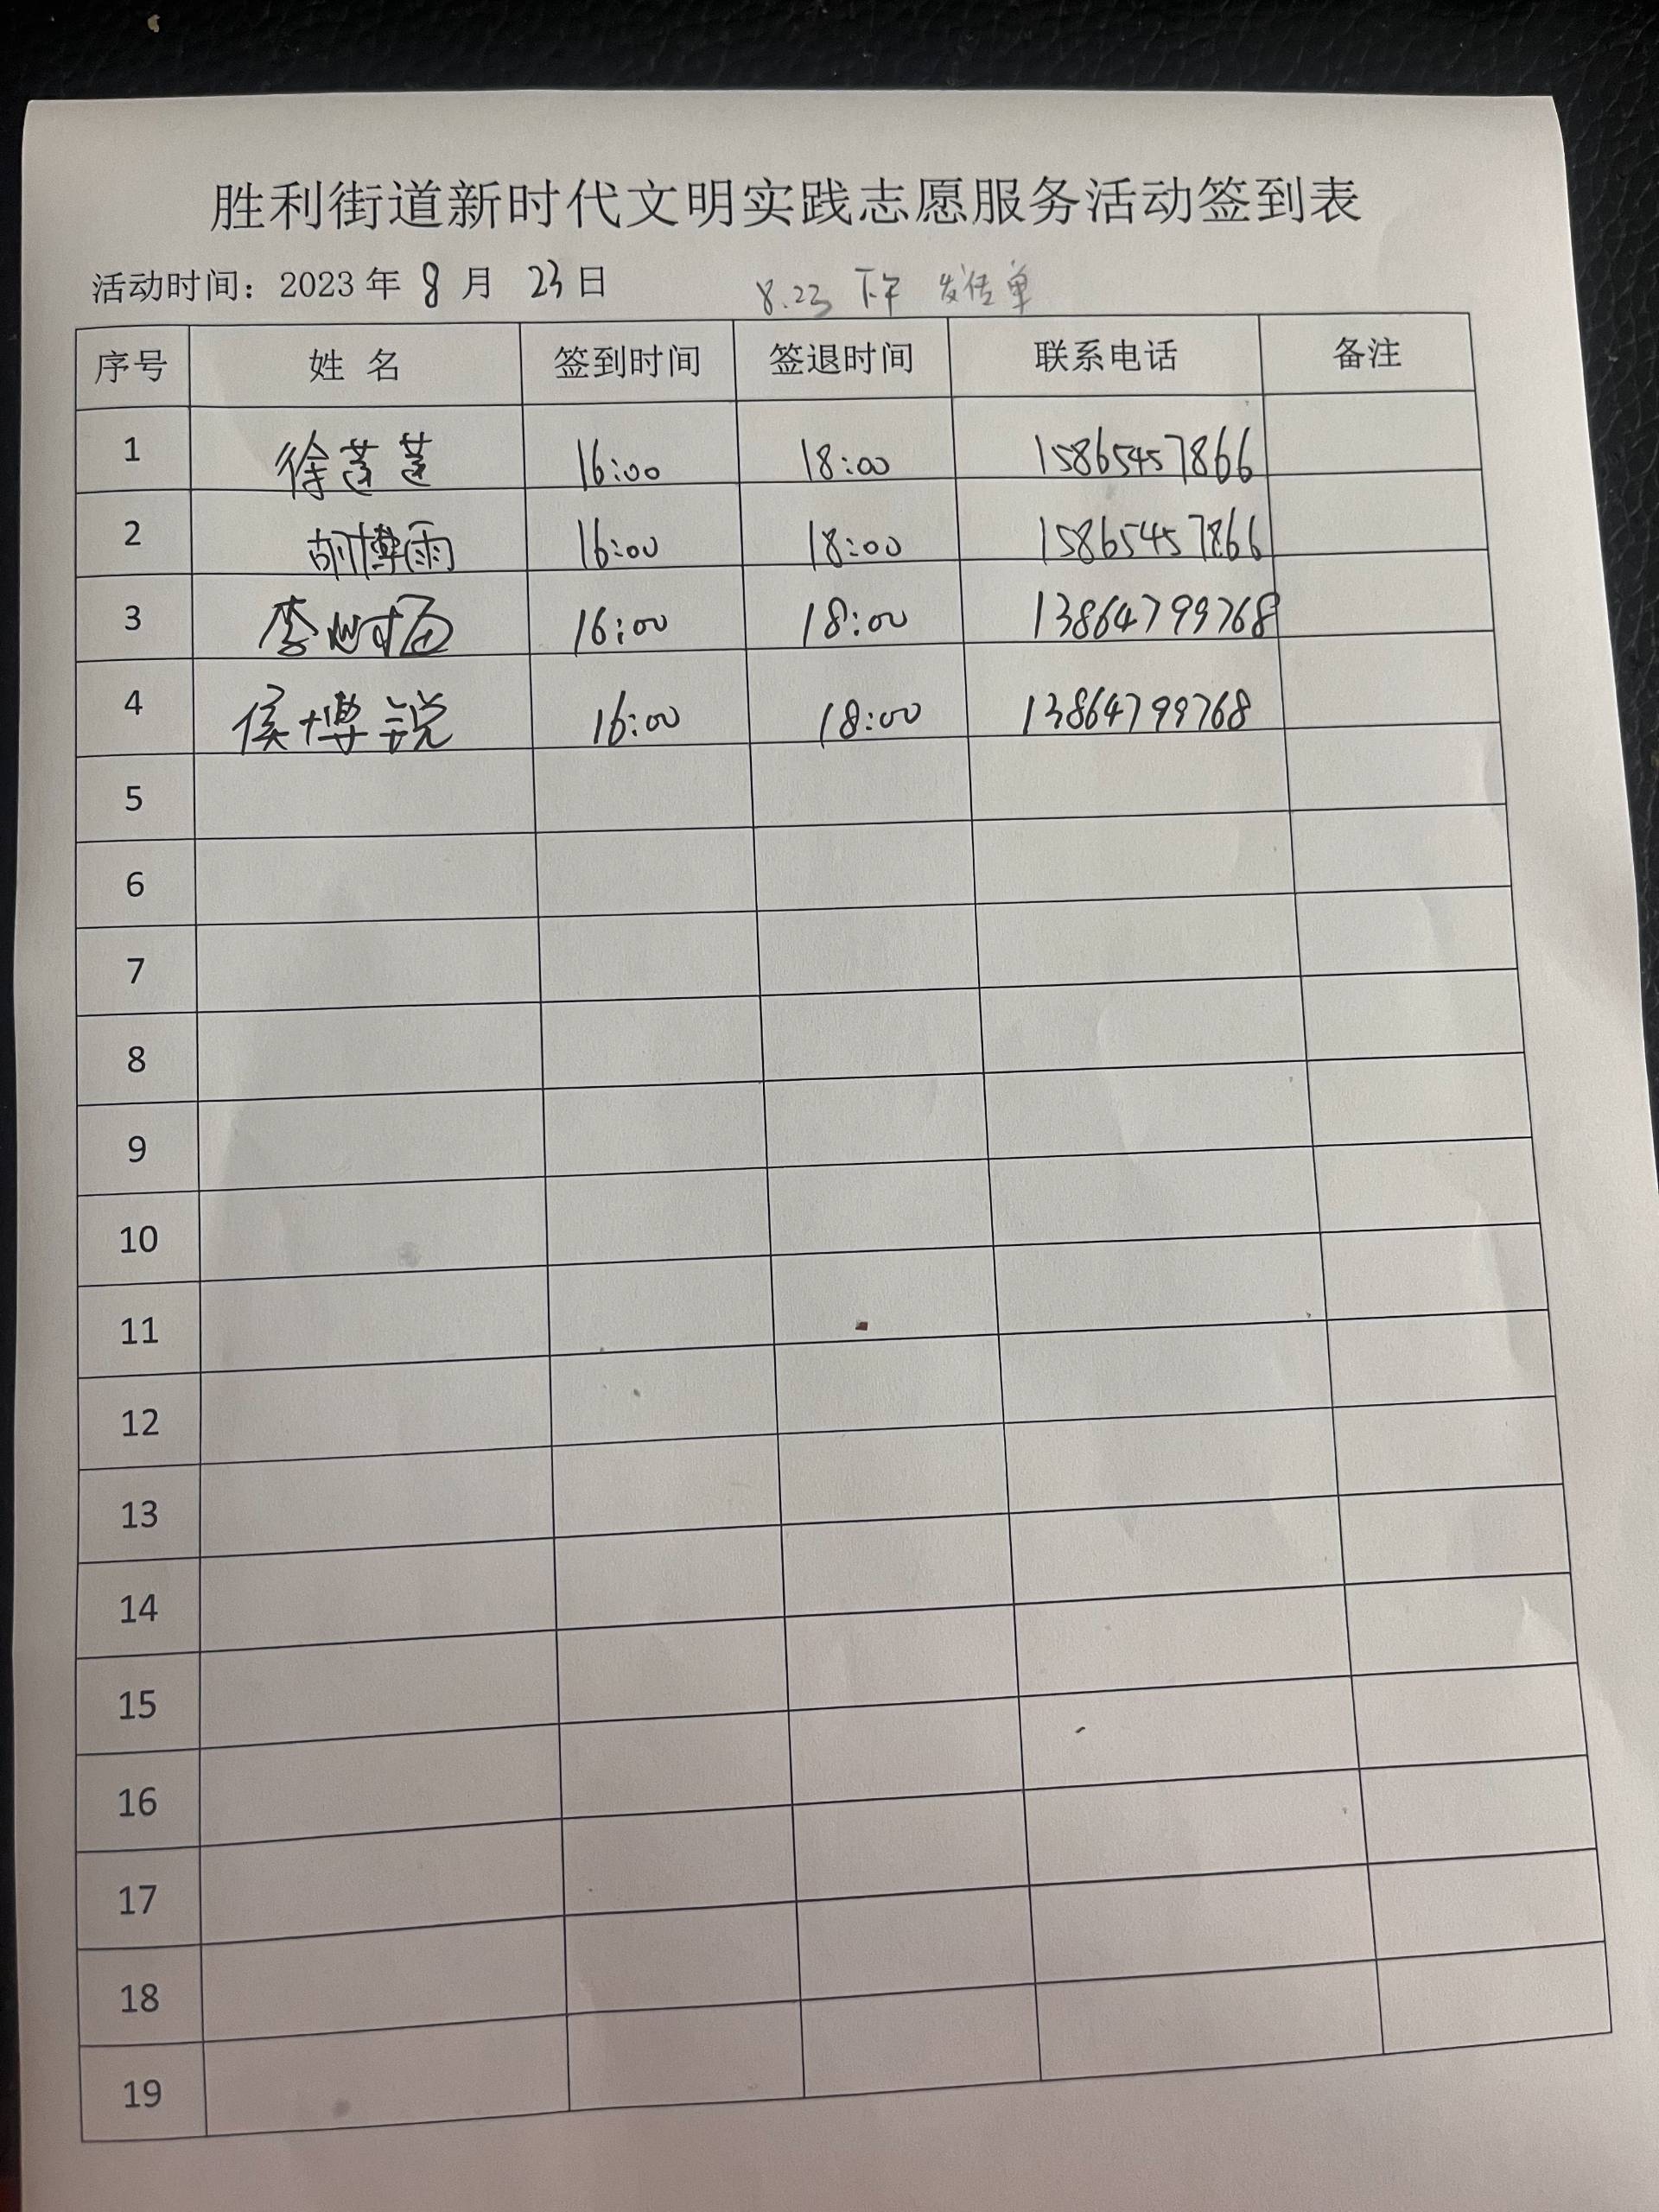 胜利街道新时代文明实践志愿服务活动签到表
活动时间：2023 年 8 月 23 日 8.23 下午 发传单
序号 姓 名 签到时间 签退时间 联系电话 备注
1 徐莲莲 16:00 18:00 15865457866
2 胡博雨 16:00 18:00 15865457866
3 李 16:00 18:00 13864799768
4 侯博锐 16:00 18:00 13864799768
5
6
7
8
9
10
11
12
13
14
15
16
17
18
19